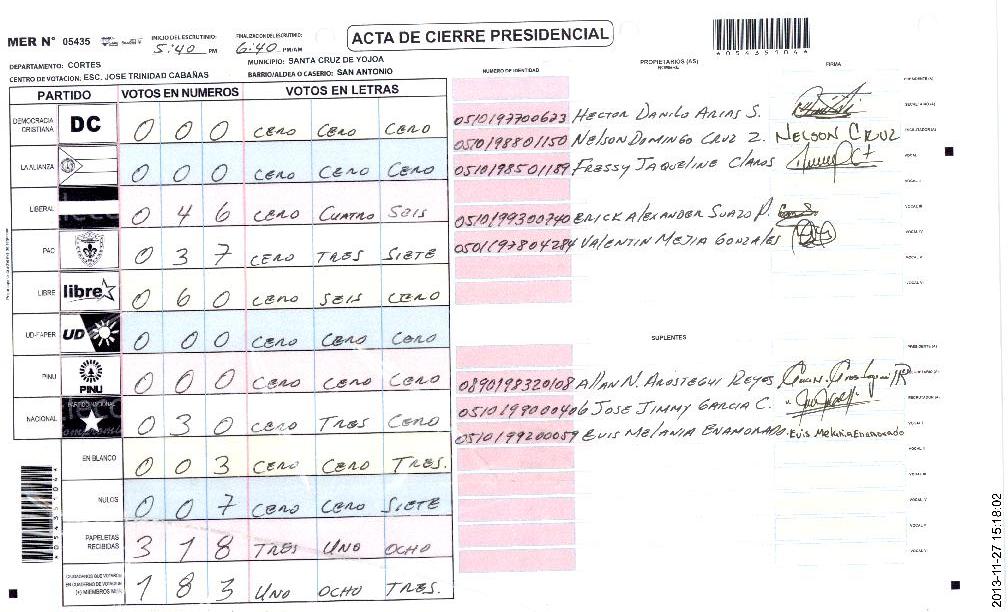 MER N° 05435
INICIO DEL ESCRUTINIO: 5:40 PM
FINALIZACION DEL ESCRUTINIO: 6:40 PM/AM
ACTA DE CIERRE PRESIDENCIAL
DEPARTAMENTO: CORTES
MUNICIPIO: SANTA CRUZ DE YOJOA
CENTRO DE VOTACION: ESC. JOSE TRINIDAD CABAÑAS
BARRIO/ALDEA O CASERIO: SAN ANTONIO
PARTIDO VOTOS EN NUMEROS VOTOS EN LETRAS
DEMOCRACIA CRISTIANA DC 0 0 0 CERO CERO CERO
LA ALIANZA 0 0 0 CERO CERO CERO
LIBERAL 0 4 6 CERO CUATRO SEIS
PAC 0 3 7 CERO TRES SIETE
LIBRE libre 0 6 0 CERO SEIS CERO
UD-FAPER UD 0 0 0 CERO CERO CERO
PINU PINU 0 0 0 CERO CERO CERO
NACIONAL 0 3 0 CERO TRES CERO
EN BLANCO 0 0 3 CERO CERO TRES.
NULOS 0 0 7 CERO CERO SIETE
PAPELETAS RECIBIDAS 3 1 8 TRES UNO OCHO
1 8 3 UNO OCHO TRES.
NUMERO DE IDENTIDAD
PROPIETARIOS (AS)
NOMBRE
FIRMA
0510197700623 HECTOR DANILO ARIAS S.
0510198801150 NELSON DOMINGO CRUZ Z. NELSON CRUZ
0510198501189 FRESSY JAQUELINE CLAROS
0510199300740 ERICK ALEXANDER SUAZO P.
0501197804284 VALENTIN MEJIA GONZALES
SUPLENTES
0890198320108 ALLAN N. AROSTEGUI REYES
0510198000406 JOSE JIMMY GARCIA C.
0510199200059 EUIS MELANIA ENAMORADO Euis Melania Enamorado
2013-11-27 15:18:02